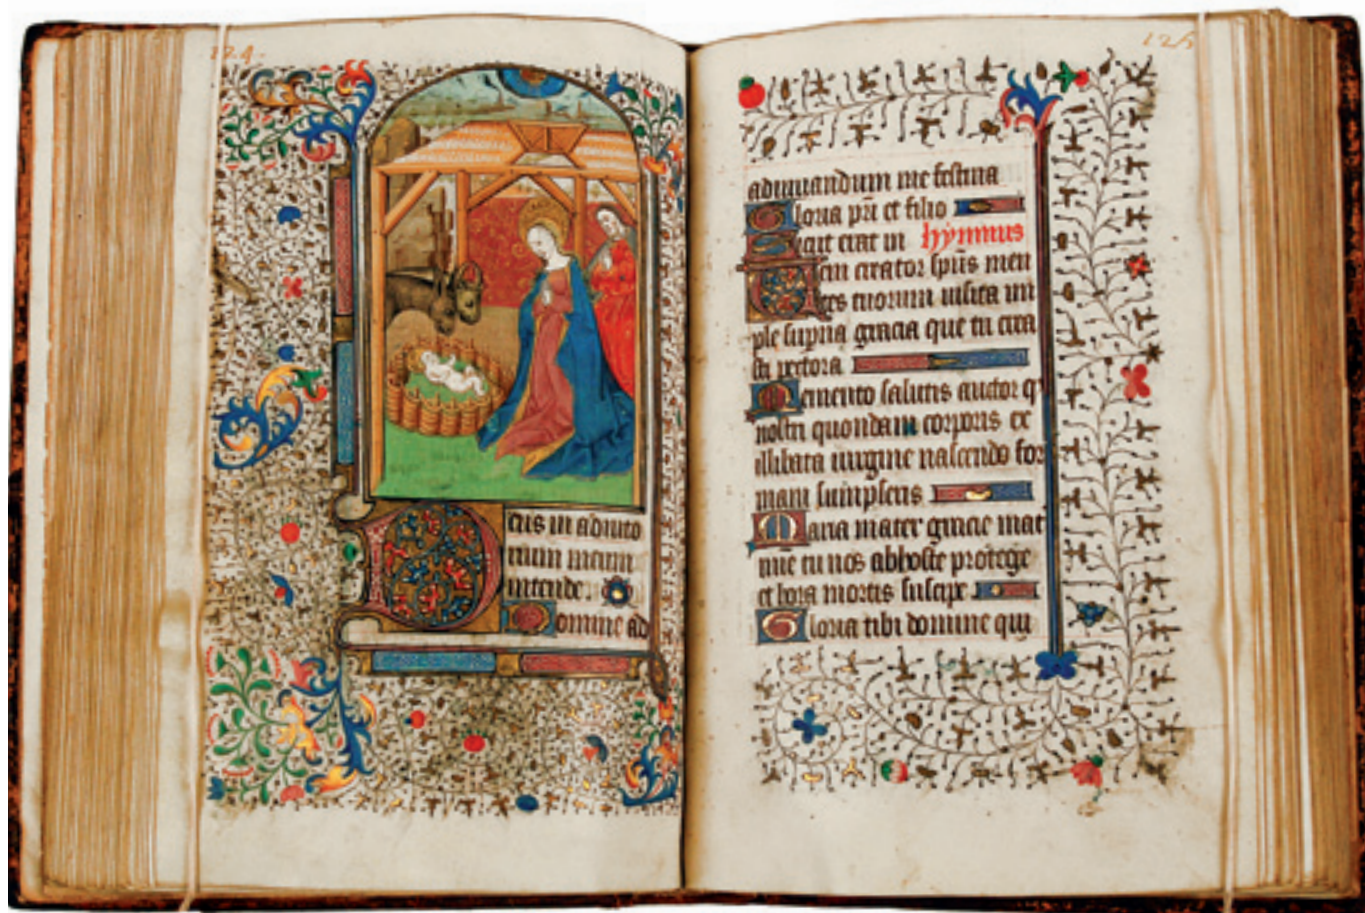 124.
Deus in adiuto
rium meum
intende.
Domine ad
125
adiuuandum me festina
Gloria pri et filio
Sicut erat in hymnus
Veni creator spus men
tes tuorum uisita im
ple supna gracia que tu crea
sti pectora
Memento salutis auctor q
nostri quondam corporis ex
illibata uirgine nascendo for
mam sumpseris
Maria mater gracie mat
mie tu nos ab hoste protege
et hora mortis suscipe
Gloria tibi domine qui